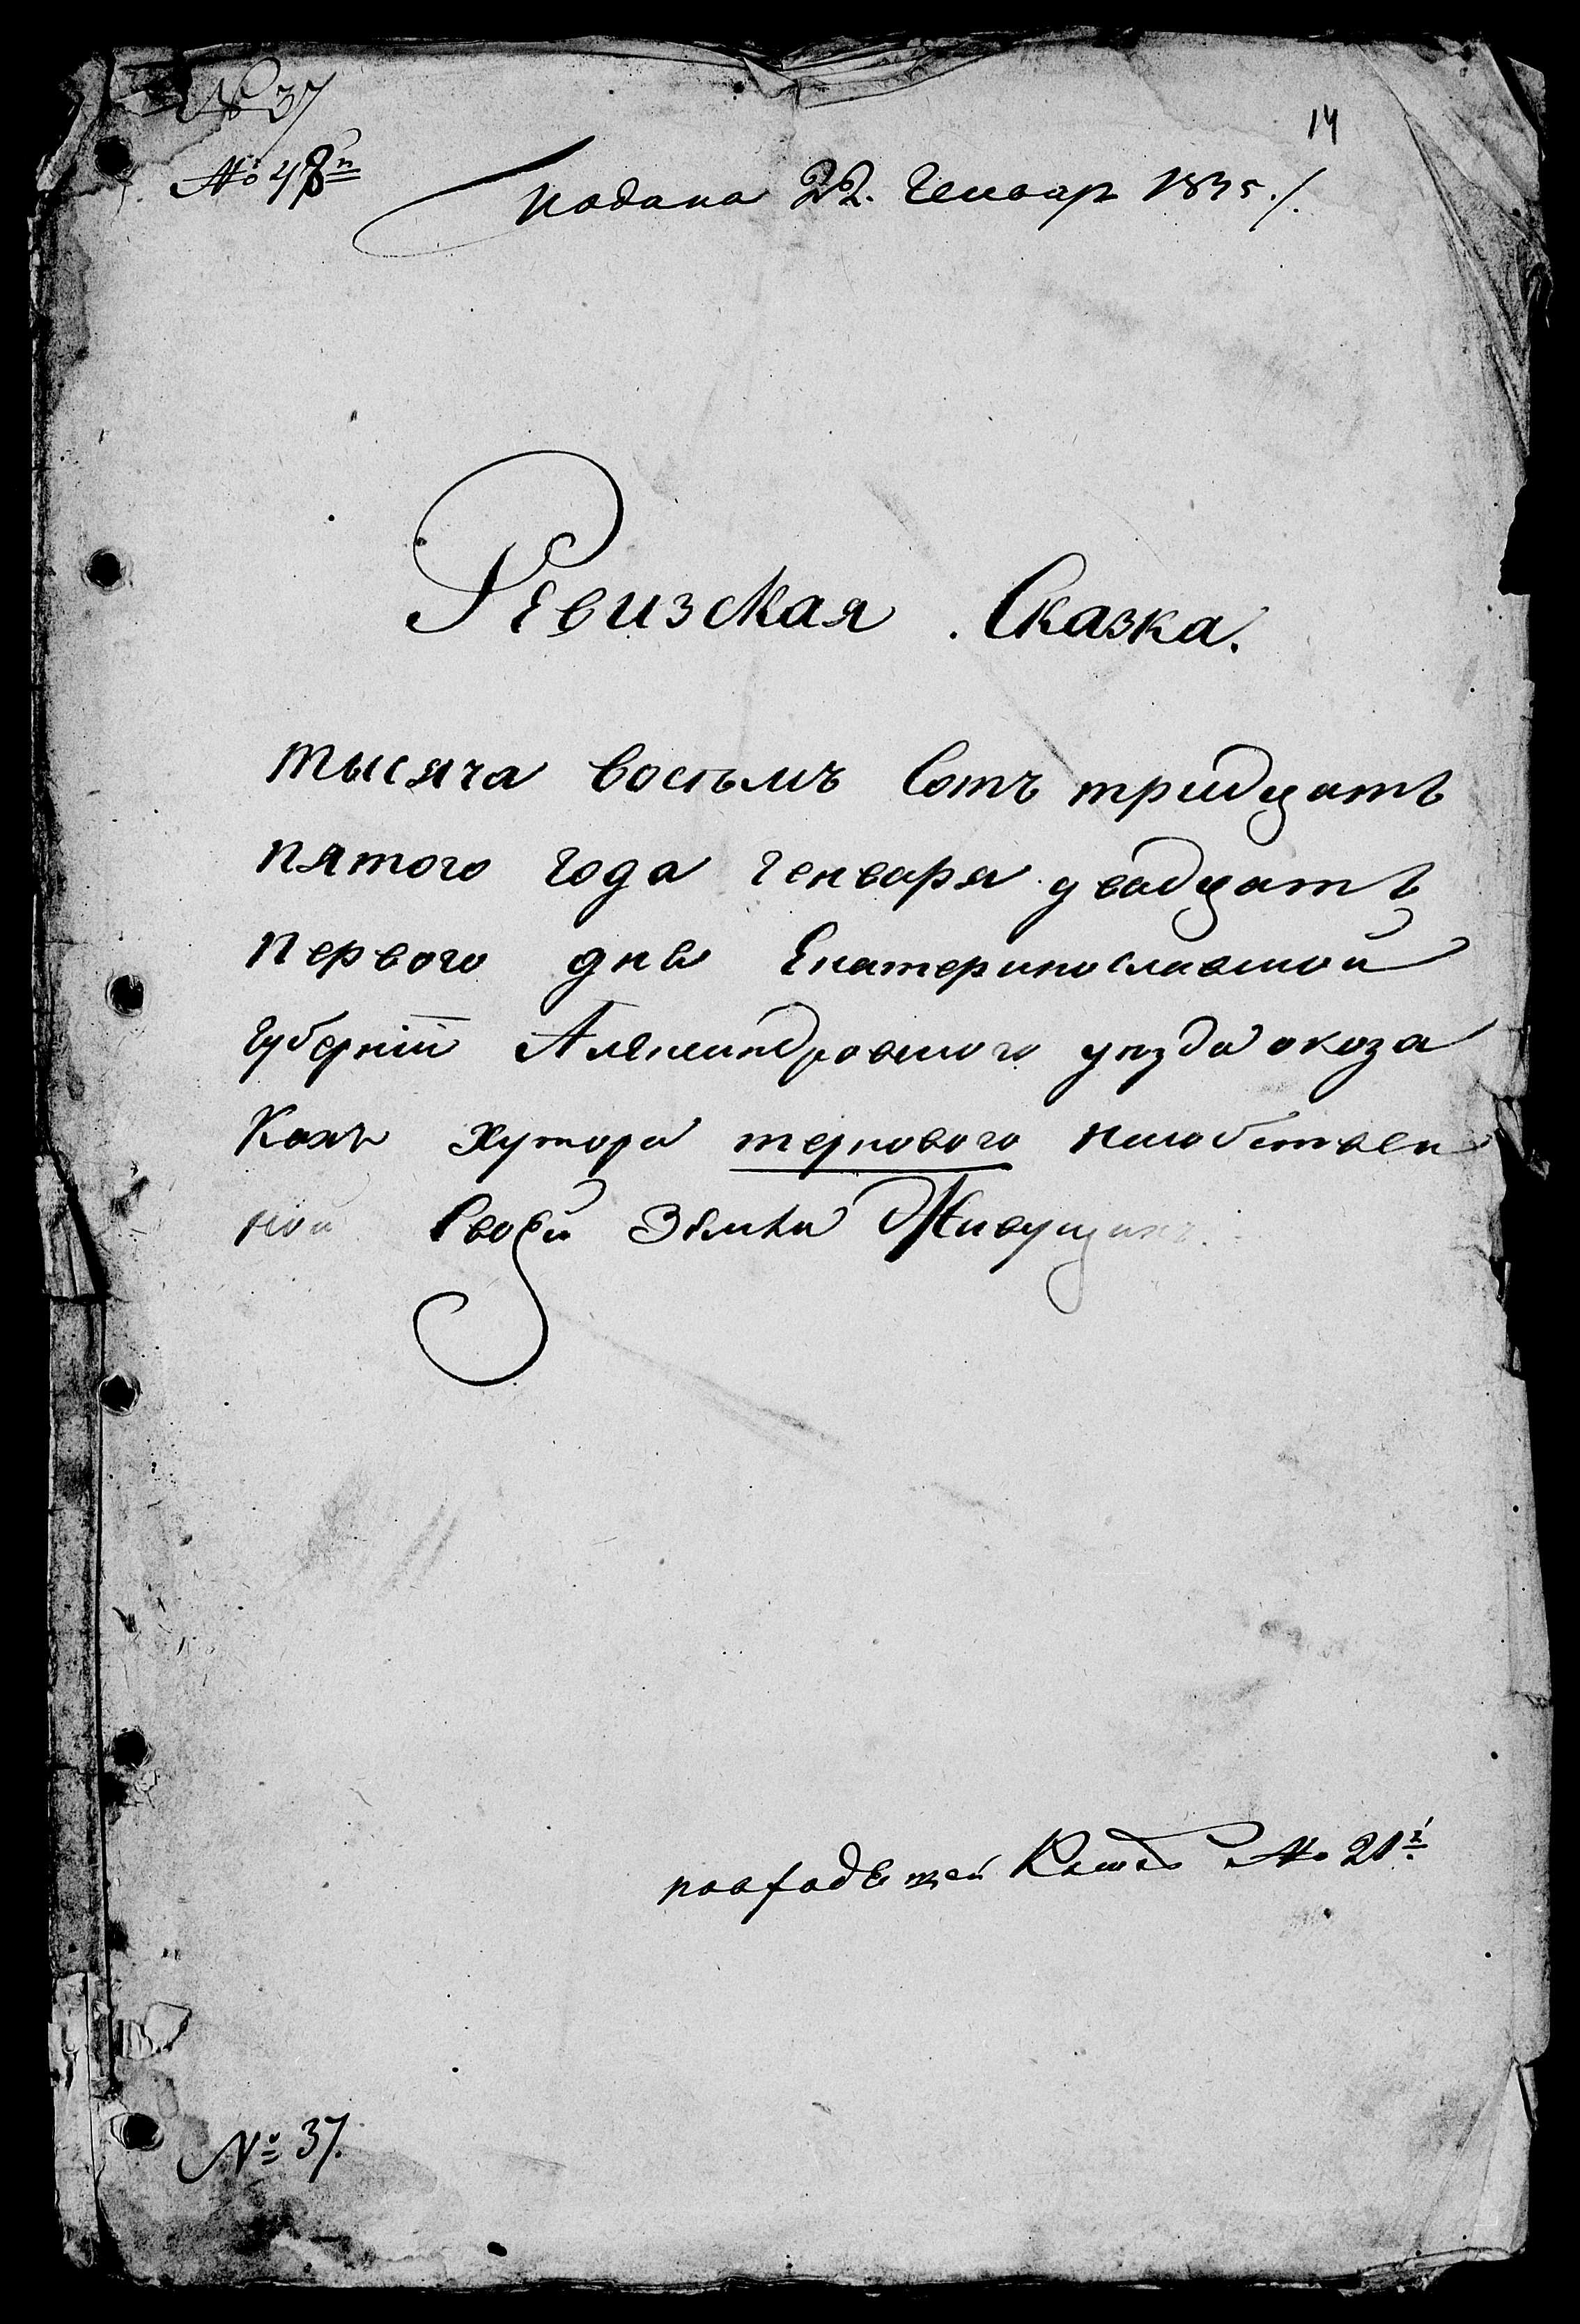 № 37
14
№ 48й
подана 22. Генвар 1835./.
Ревизская Сказка.
тысяча восемъ сотъ тридцать
пятого года генваря двадцать
первого дня Екатеринославской
губерніи Александровского уезда оказа
кахъ хутора тернового насобствен
ной своей земли Живущихъ.
Книге № 21й
№ 37.